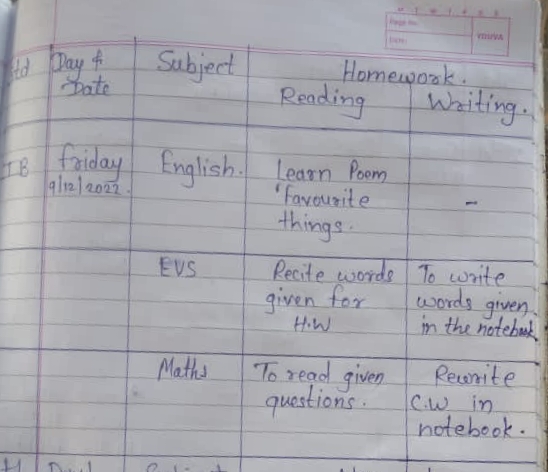 Page No.
Date:
YOUVA
Std Day & Subject Homework.
Date Reading Writing.
I B friday English. Learn Poem
9/12/2022. 'favourite -
things.
EVS Recite words To write
given for words given
H.W in the notebook
Maths To read given Rewrite
questions. C.W in
notebook.